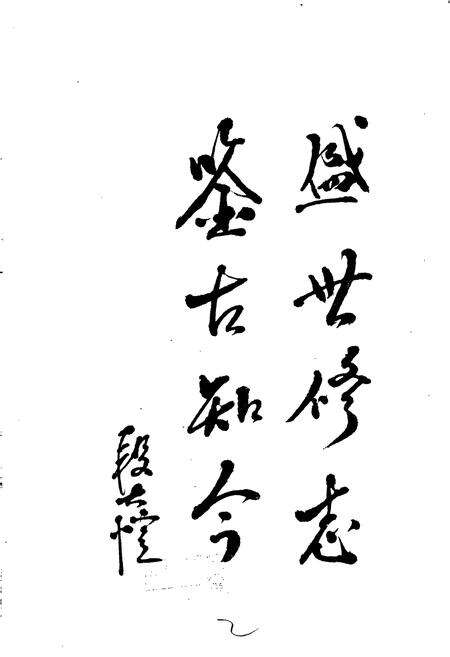 盛世修志
鉴古知今
段大恺